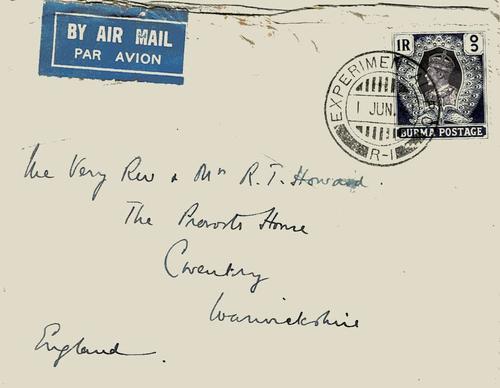 BY AIR MAIL
PAR AVION
1R
BURMA POSTAGE
EXPERIMENT
1 JUN.
R-1
The Very Rev & Mrs R. T. Howard.
The Provost's House
Coventry
Warwickshire
England.